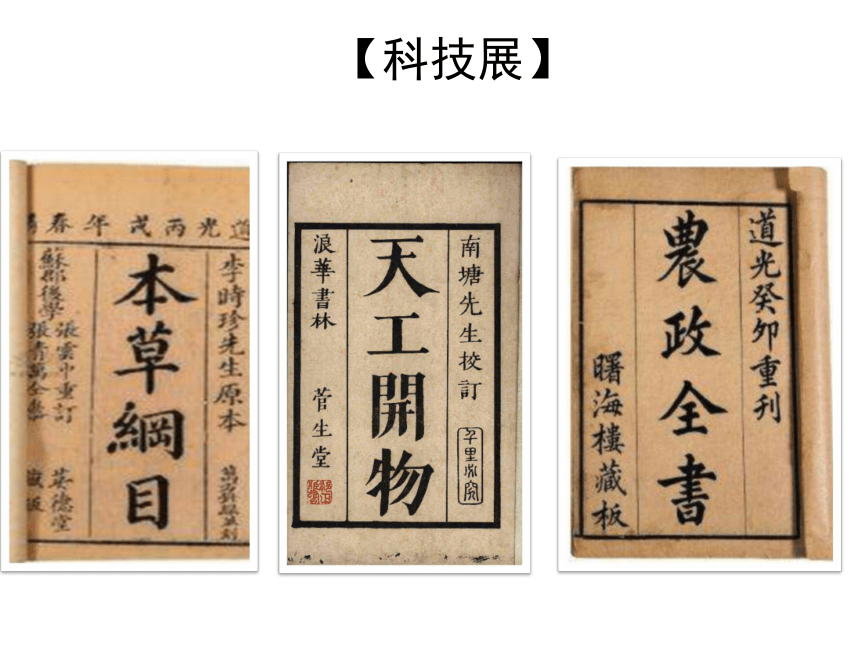 【科技展】
道光丙戌年春
李時珍先生原本
本草綱目
蘇郡後學
張雲中重訂
張青萬全參
英德堂
藏板
南塘先生校訂
天工開物
浪華書林
菅生堂
道光癸卯重刊
農政全書
曙海樓藏板